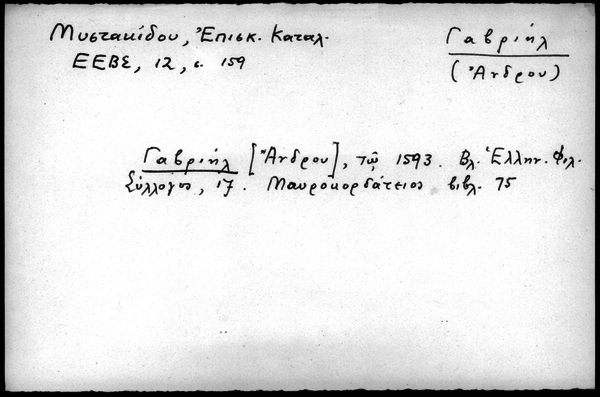 Μυστακίδου, Ἐπισκ. Καταλ.
ΕΕΒΣ, 12, σ. 159
Γαβριήλ
(Ἄνδρου)
Γαβριήλ [Ἄνδρου], τῷ 1593. Βλ. Ἑλλην. Φιλ.
Σύλλογος, 17. Μαυροκορδάτειος βιβλ. 75